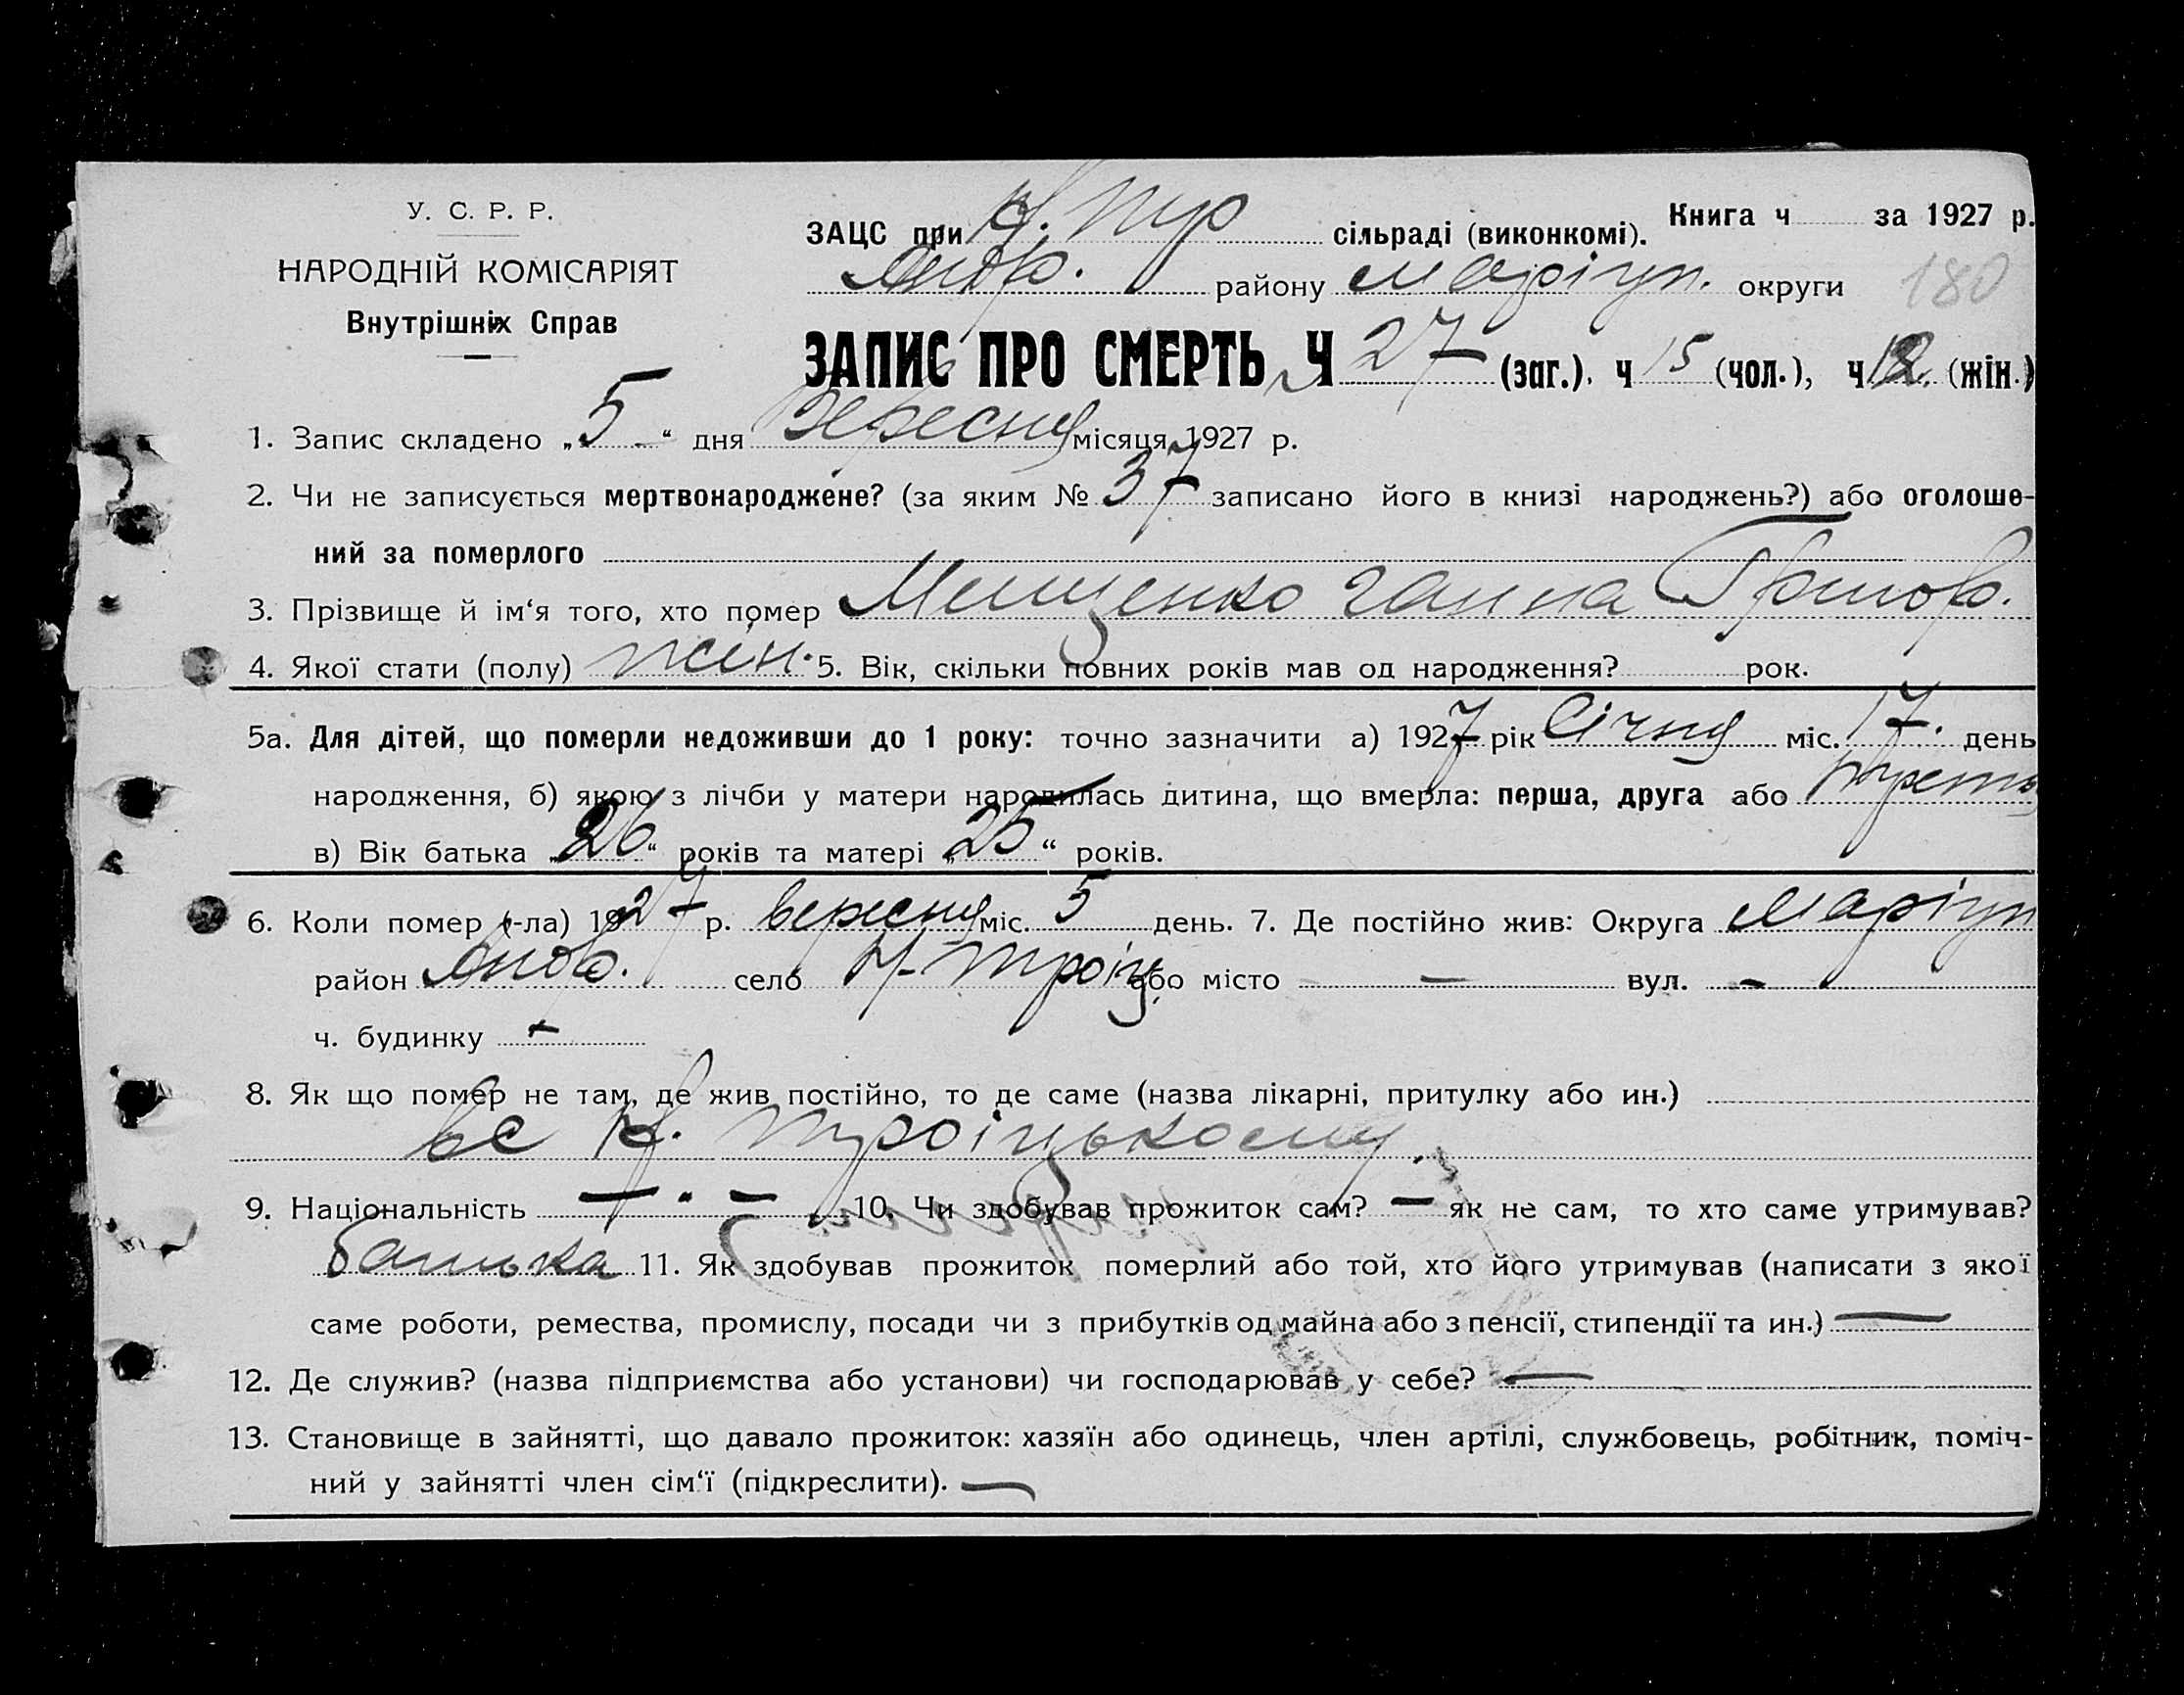 У. С. Р. Р.
НАРОДНІЙ КОМІСАРІЯТ
Внутрішніх Справ
Книга ч за 1927 р.
ЗАЦС при Н. Тро сільраді (виконкомі).
Янов. району Маріуп. округи 180
ЗАПИС ПРО СМЕРТЬ Ч 27 (заг.). ч 15 (чол.), ч 12 (жін.)
1. Запис складено „5“ дня Вересня місяця 1927 р.
2. Чи не записується мертвонароджене? (за яким № 37 записано його в книзі народжень?) або оголоше-
ний за померлого
3. Прізвище й ім‘я того, хто помер Мищенко Ганна Григор.
4. Якої стати (полу) жін. 5. Вік, скільки повних років мав од народження? рок.
5а. Для дітей, що померли недоживши до 1 року: точно зазначити а) 1927 рік Січня міс. 17. день
народження, б) якою з лічби у матери народилась дитина, що вмерла: перша, друга або третя
в) Вік батька „26“ років та матері „25“ років.
6. Коли помер (-ла) 1927 р. вересня міс. 5 день. 7. Де постійно жив: Округа Маріуп
район Янов. село Н-Троіц. або місто — вул. —
ч. будинку —
8. Як що помер не там, де жив постійно, то де саме (назва лікарні, притулку або ин.)
вс Н. Троіцькому.
9. Національність — . — 10. Чи здобував прожиток сам? — як не сам, то хто саме утримував?
батька 11. Як здобував прожиток померлий або той, хто його утримував (написати з якої
саме роботи, ремества, промислу, посади чи з прибутків од майна або з пенсії, стипендії та ин.) —
12. Де служив? (назва підприємства або установи) чи господарював у себе? —
13. Становище в зайнятті, що давало прожиток: хазяїн або одинець, член артілі, службовець, робітник, поміч-
ний у зайнятті член сім‘ї (підкреслити). —